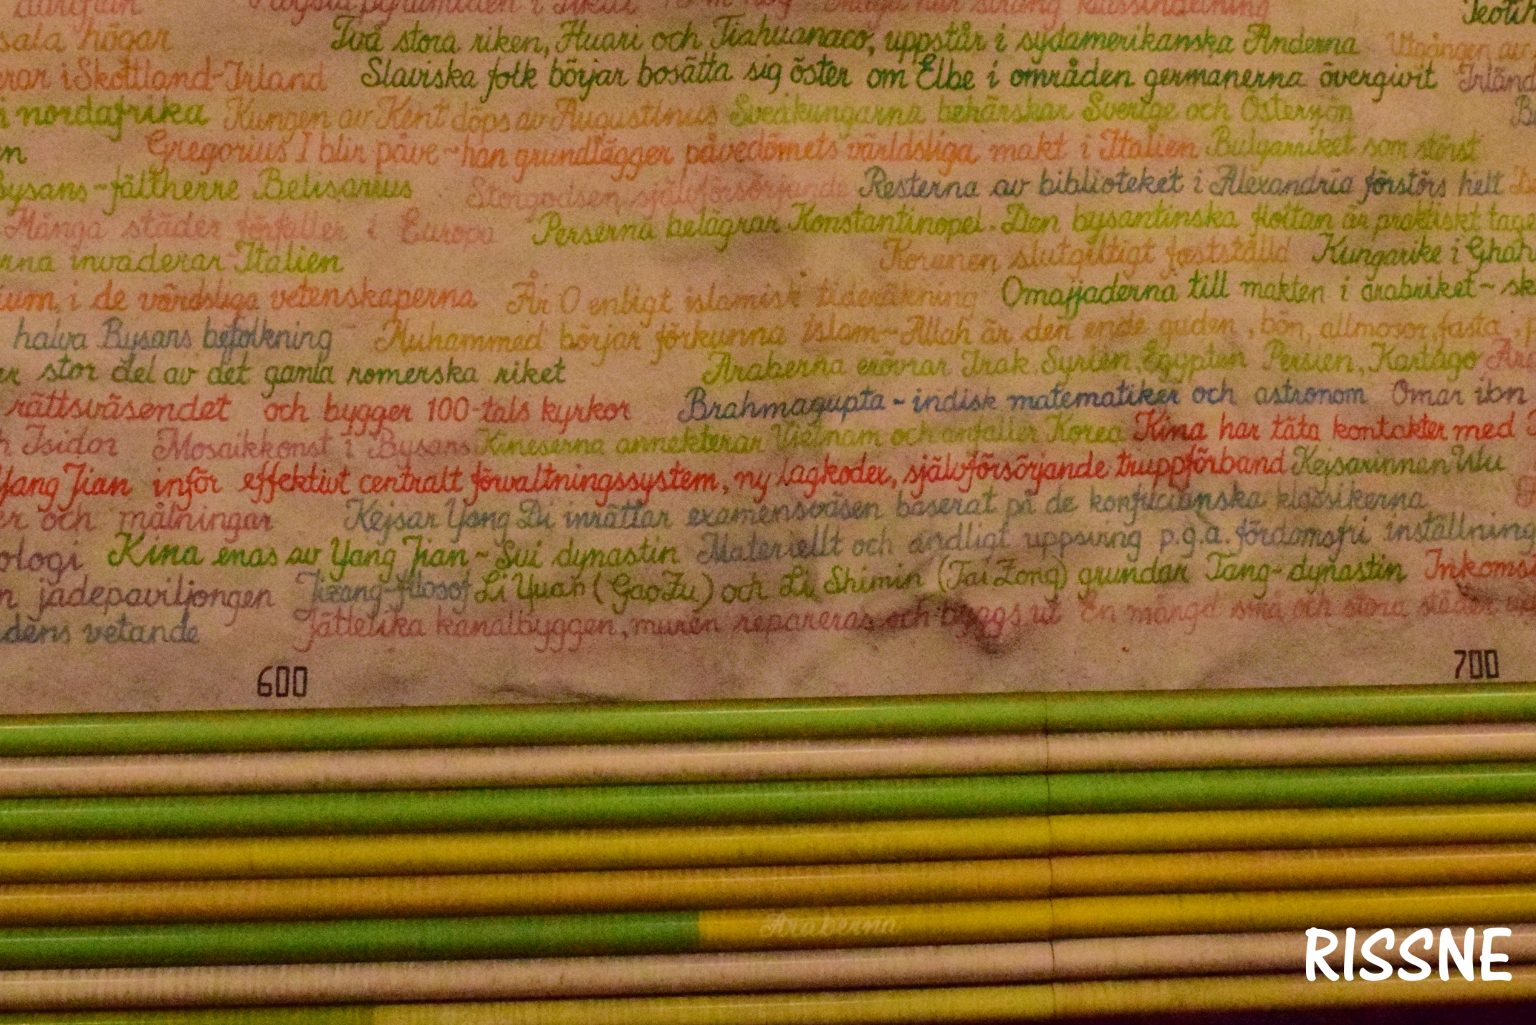 Två stora riken, Huari och Tiahuanaco, uppstår i sydamerikanska Anderna Utgången av
sala högar
rar i Skottland-Irland Slaviska folk börjar bosätta sig öster om Elbe i områden germanerna övergivit Irländ
i nordafrika Kungen av Kent döps av Augustinus Sveakungarna behärskar Sverige och Östersjön
n Gregorius I blir påve ~ han grundlägger påvedömets världsliga makt i Italien Bulgarriket som störst
Bysans-fältherre Belisarius Storgodsen självförsörjande Resterna av biblioteket i Alexandria förstörs helt
Många städer förfaller i Europa Perserna belägrar Konstantinopel. Den bysantinska flottan är praktiskt tag
rna invaderar Italien Koranen slutgiltigt fastställd Kungarike i Ghan
ium, i de värdsliga vetenskaperna År 0 enligt islamisk tideräkning Omajjaderna till makten i arabriket ~ sk
halva Bysans befolkning Muhammed börjar förkunna islam ~ Allah är den ende guden, bön, allmosor, fasta,
er stor del av det gamla romerska riket Araberna erövrar Irak, Syrien, Egypten Persien, Kartago
rättsväsendet och bygger 100-tals kyrkor Brahmagupta - indisk matematiker och astronom Omar ibn
h Isidor Mosaikkonst i Bysans Kineserna annekterar Vietnam och anfaller Korea Kina har täta kontakter med
Yang Jian inför effektivt centralt förvaltningssystem, ny lagkodex, självförsörjande truppförband Kejsarinnan Wu
er och målningar Kejsar Yang Di inrättar examensväsen baserat på de konfucianska klassikerna
ologi Kina enas av Yang Jian ~ Sui dynastin Materiellt och andligt uppsving p.g.a. fördomsfri inställning
n jadepaviljongen Tizang-filosof Li Yuan (GaoZu) och Li Shimin (Tai Zong) grundar Tang-dynastin Inkoms
dens vetande Jättelika kanalbyggen, muren repareras och byggs ut En mängd små och stora städer
600 700
Araberna
RISSNE